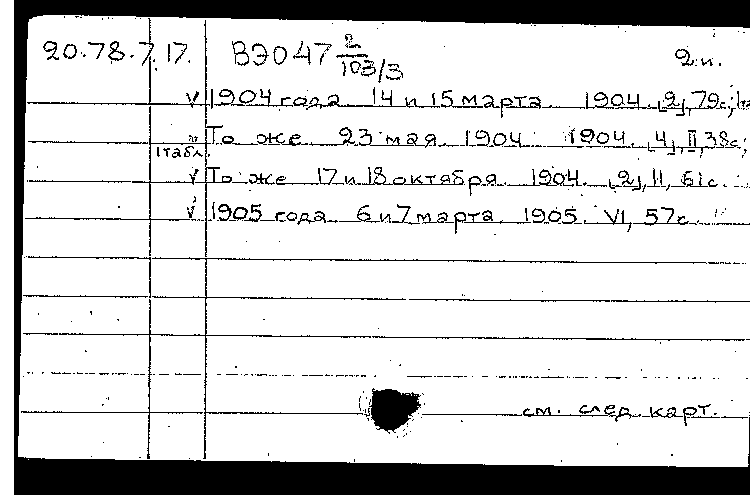 20.78.7.17. ВЭ047 2/103/3 2 и.
V 1904 года 14 и 15 марта. 1904. [2], 79 с.,
То же 23 мая 1904 1904. [4], II, 38 с.;
1 табл.
V То же 17 и 18 октября. 1904. [2], II, 61 с.
V 1905 года 6 и 7 марта 1905. VI, 57 с.
см. след. карт.